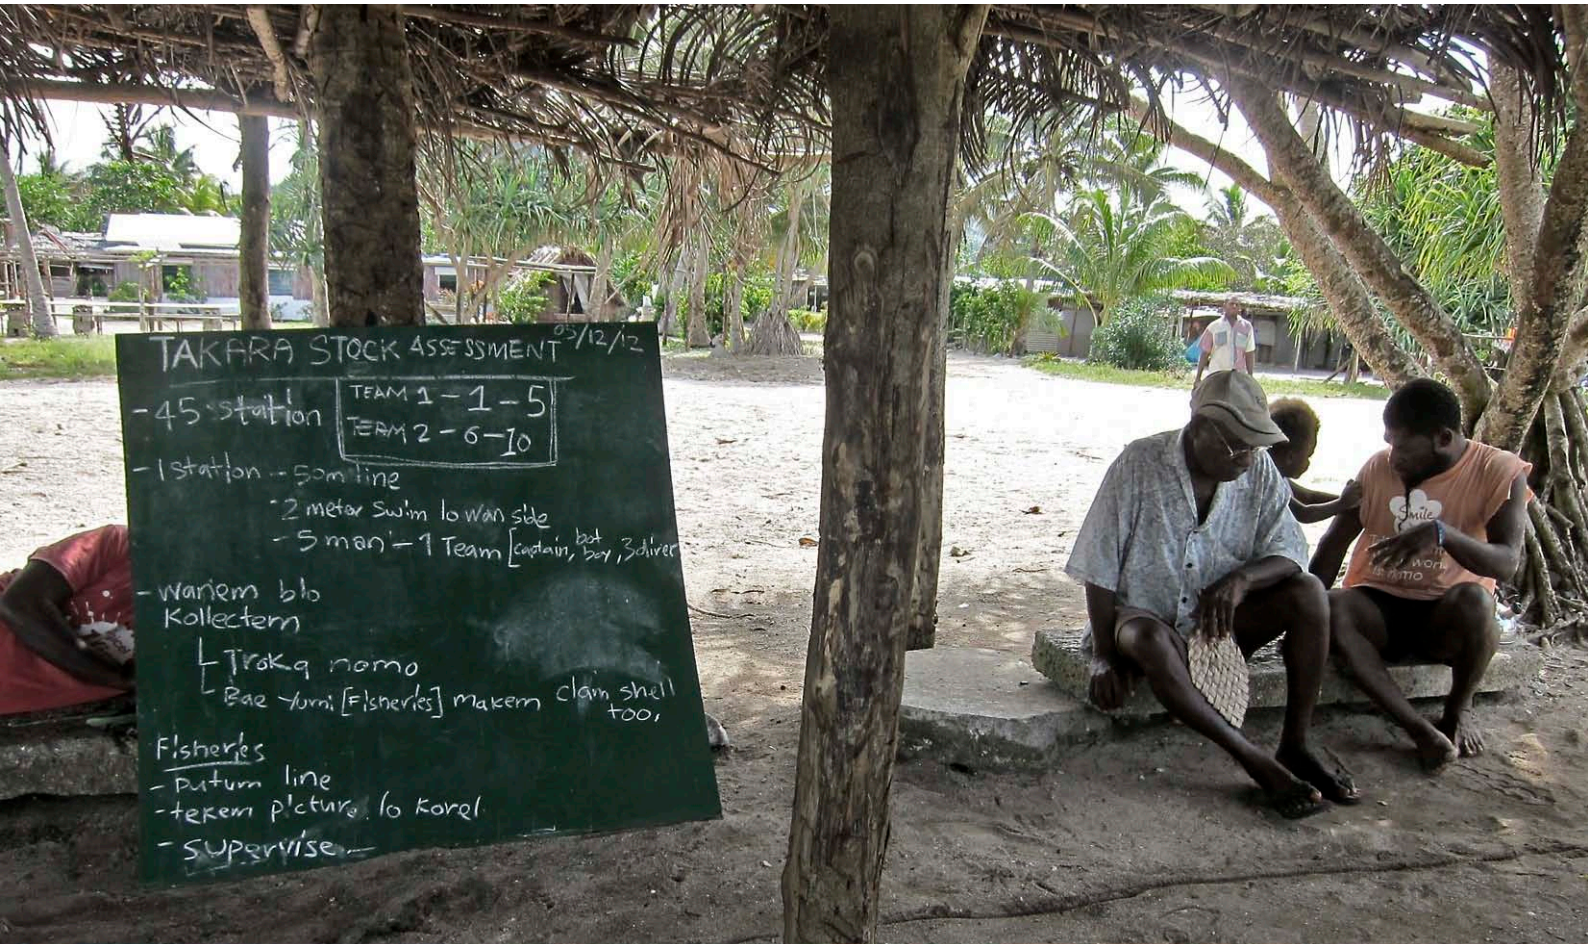 TAKARA STOCK ASSESSMENT 05/12/12
- 45 station
TEAM 1 - 1 - 5
TEAM 2 - 6 - 10
- 1 station - 50m line
- 2 meter swim lo wan side
- 5 man - 1 Team [captain, bot boy, 3 diver
- wanem blo
Kollectem
Troka nomo
Bae yumi [Fisheries] makem clam shell
too,
Fisheries
- Putum line
- tekem picture lo korel.
- supervise -
Smile